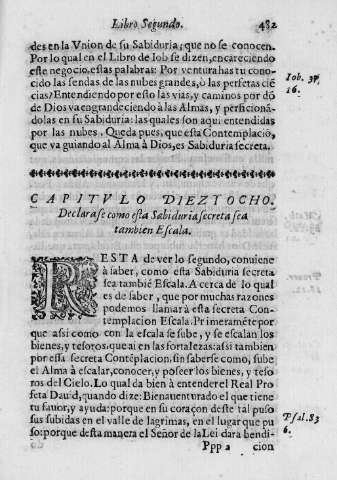 Libro Segundo. 482
des en la Vnion de su Sabiduria; que no se conocen.
Por lo qual en el Libro de Iob se dizen, encareciendo
este negocio, estas palabras: Por ventura has tu cono-
cido las sendas de las nubes grandes, ò las perfetas ciē
cias? Entendiendo por esto las vias, y caminos por dō
de Dios va engrandeciendo à las Almas, y perficionā-
dolas en su Sabiduria: las quales son aqui entendidas
por las nubes. Queda pues, que esta Contemplaciō,
que va guiando al Alma à Dios, es Sabiduria secreta.
Iob. 37.
16.
CAPITVLO DIEZIOCHO.
Declarase como esta Sabiduria secreta sea
tambien Escala.
RESTA de ver lo segundo, conuiene
à saber, como esta Sabiduria secreta
sea tambiē Escala. Acerca de lo qual
es de saber, que por muchas razones
podemos llamar à esta secreta Con-
templacion Escala. Primeramēte por
que assi como con la escala se sube, y se escalan los
bienes, y tesoros, que ai en las fortalezas: assi tambien
por essa secreta Contēplacion, sin saberse como, sube
el Alma à escalar, conocer, y poseer los bienes, y teso
ros del Cielo. Lo qual da bièn à entender el Real Pro
feta Dauid, quando dize: Bienauenturado el que tiene
tu fauor, y ayuda: porque en su coraçon deste tal puso
sus subidas en el valle de lagrimas, en el lugar que pu
so: porque desta manera el Señor de la Lei dara bendi-
Psal. 83
6.
Ppp 2 cion